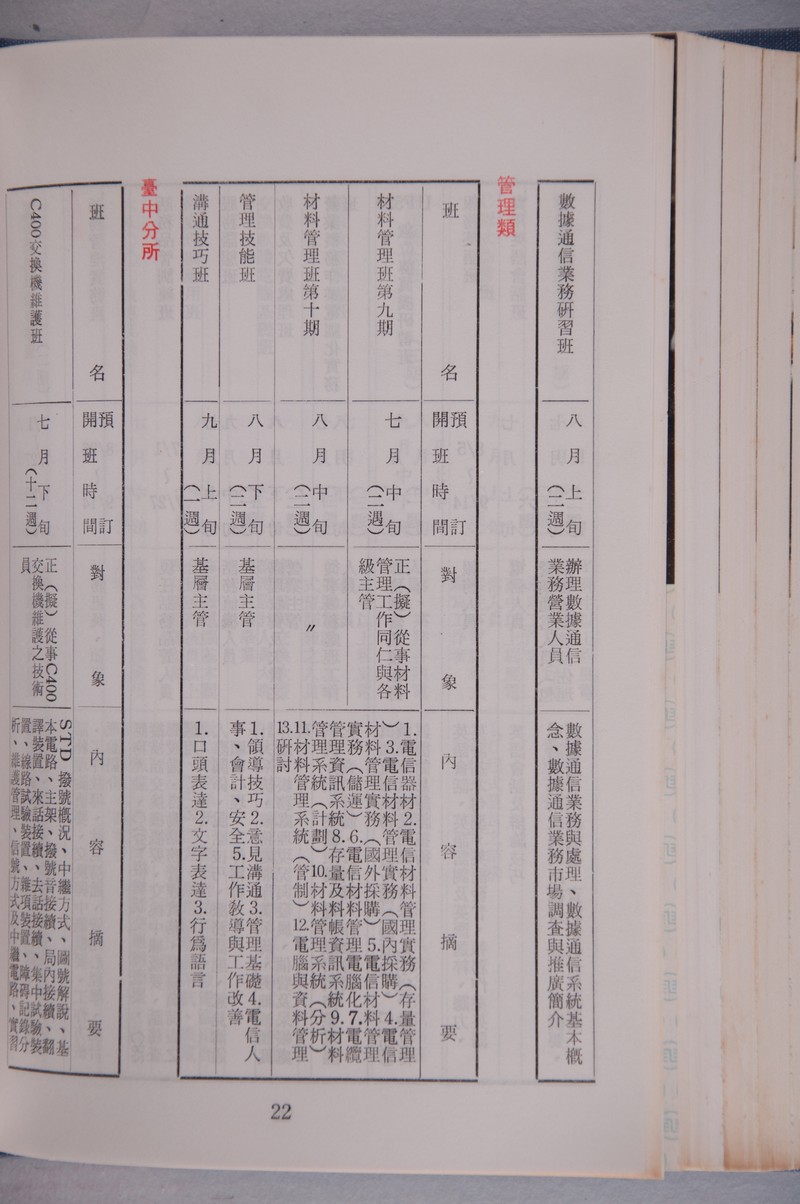 數據通信業務研習班
八月上旬
(二週)
辦理數據通信
業務營業人員
數據通信業務與處理、數據通信系統基本概
念、數據通信業務市場調查與推廣簡介
管理類
班名
預訂
開班時間
對象
內容摘要
材料管理班第九期
七月中旬
(二週)
正(擬)從事材料
管理工作同仁與各
級主管
1.電信器材2.電信材料管理實務(存量管理
)3.電信材料管理實務(國內採購)4.電信
材料管理實務(國外採購)5.電信材料管理
實務(儲運)6.電信材料管理電腦化7.電纜
管理資訊系統8.存量及料帳資訊系統9.材料
管理系統(計劃)10.材料管理系統(分析)
11.材料管理系統(管制)12.電腦與資料管理
13.研討
材料管理班第十期
八月中旬
(二週)
〃
管理技能班
八月下旬
(二週)
基層主管
1.領導技巧2.意見溝通3.管理基礎4.電信人
事、會計、安全5.工作教導與工作改善
溝通技巧班
九月上旬
(二週)
基層主管
1.口頭表達2.文字表達3.行為語言
臺中分所
班名
預訂
開班時間
對象
內容摘要
C400交換機維護班
七月下旬
(十二週)
正(擬)從事C400
交換機維護之技術
員
STD撥號概況、中繼方式、圖號解說、基
本電路、主架、撥號音接續、局內接續、翻
譯裝置、來話接續、去話接續、集中試驗裝
置、線路試驗裝置、雜項裝置、障碍記錄分
析、維護管理、信號方式及中繼電路、實習
22